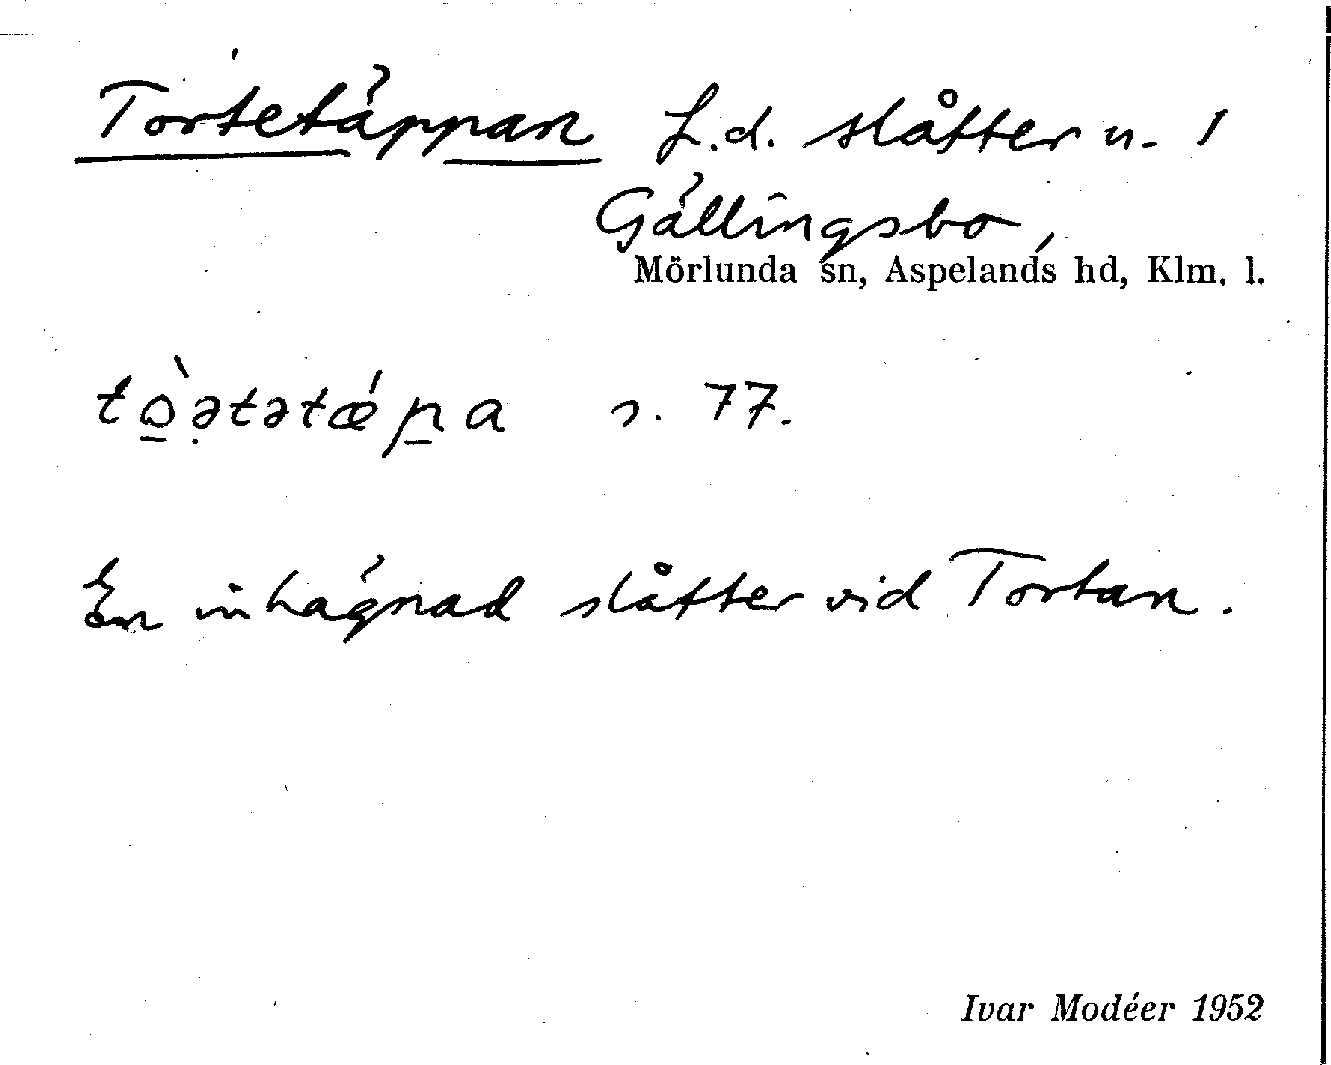 Tortetäppan f.d. slåtter n. 1
Gällingsbo,
Mörlunda sn, Aspelands hd, Klm. l.
tò̲ə̣tətǽp̲a s. 77.
En inhägnad slåtter vid Tortan.
Ivar Modéer 1952